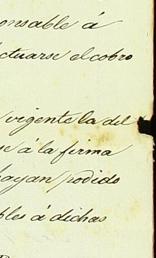 onsable á
ctuarse el cobro
vigente la del
n á la firma
hayan podido
bles á dichas